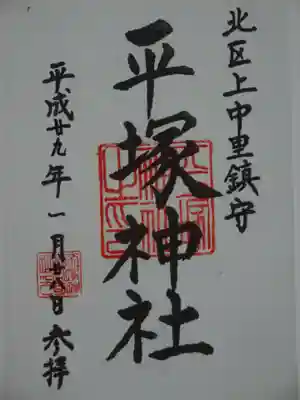 北区上中里鎮守
平塚神社
平成廿九年一月廿八日参拝